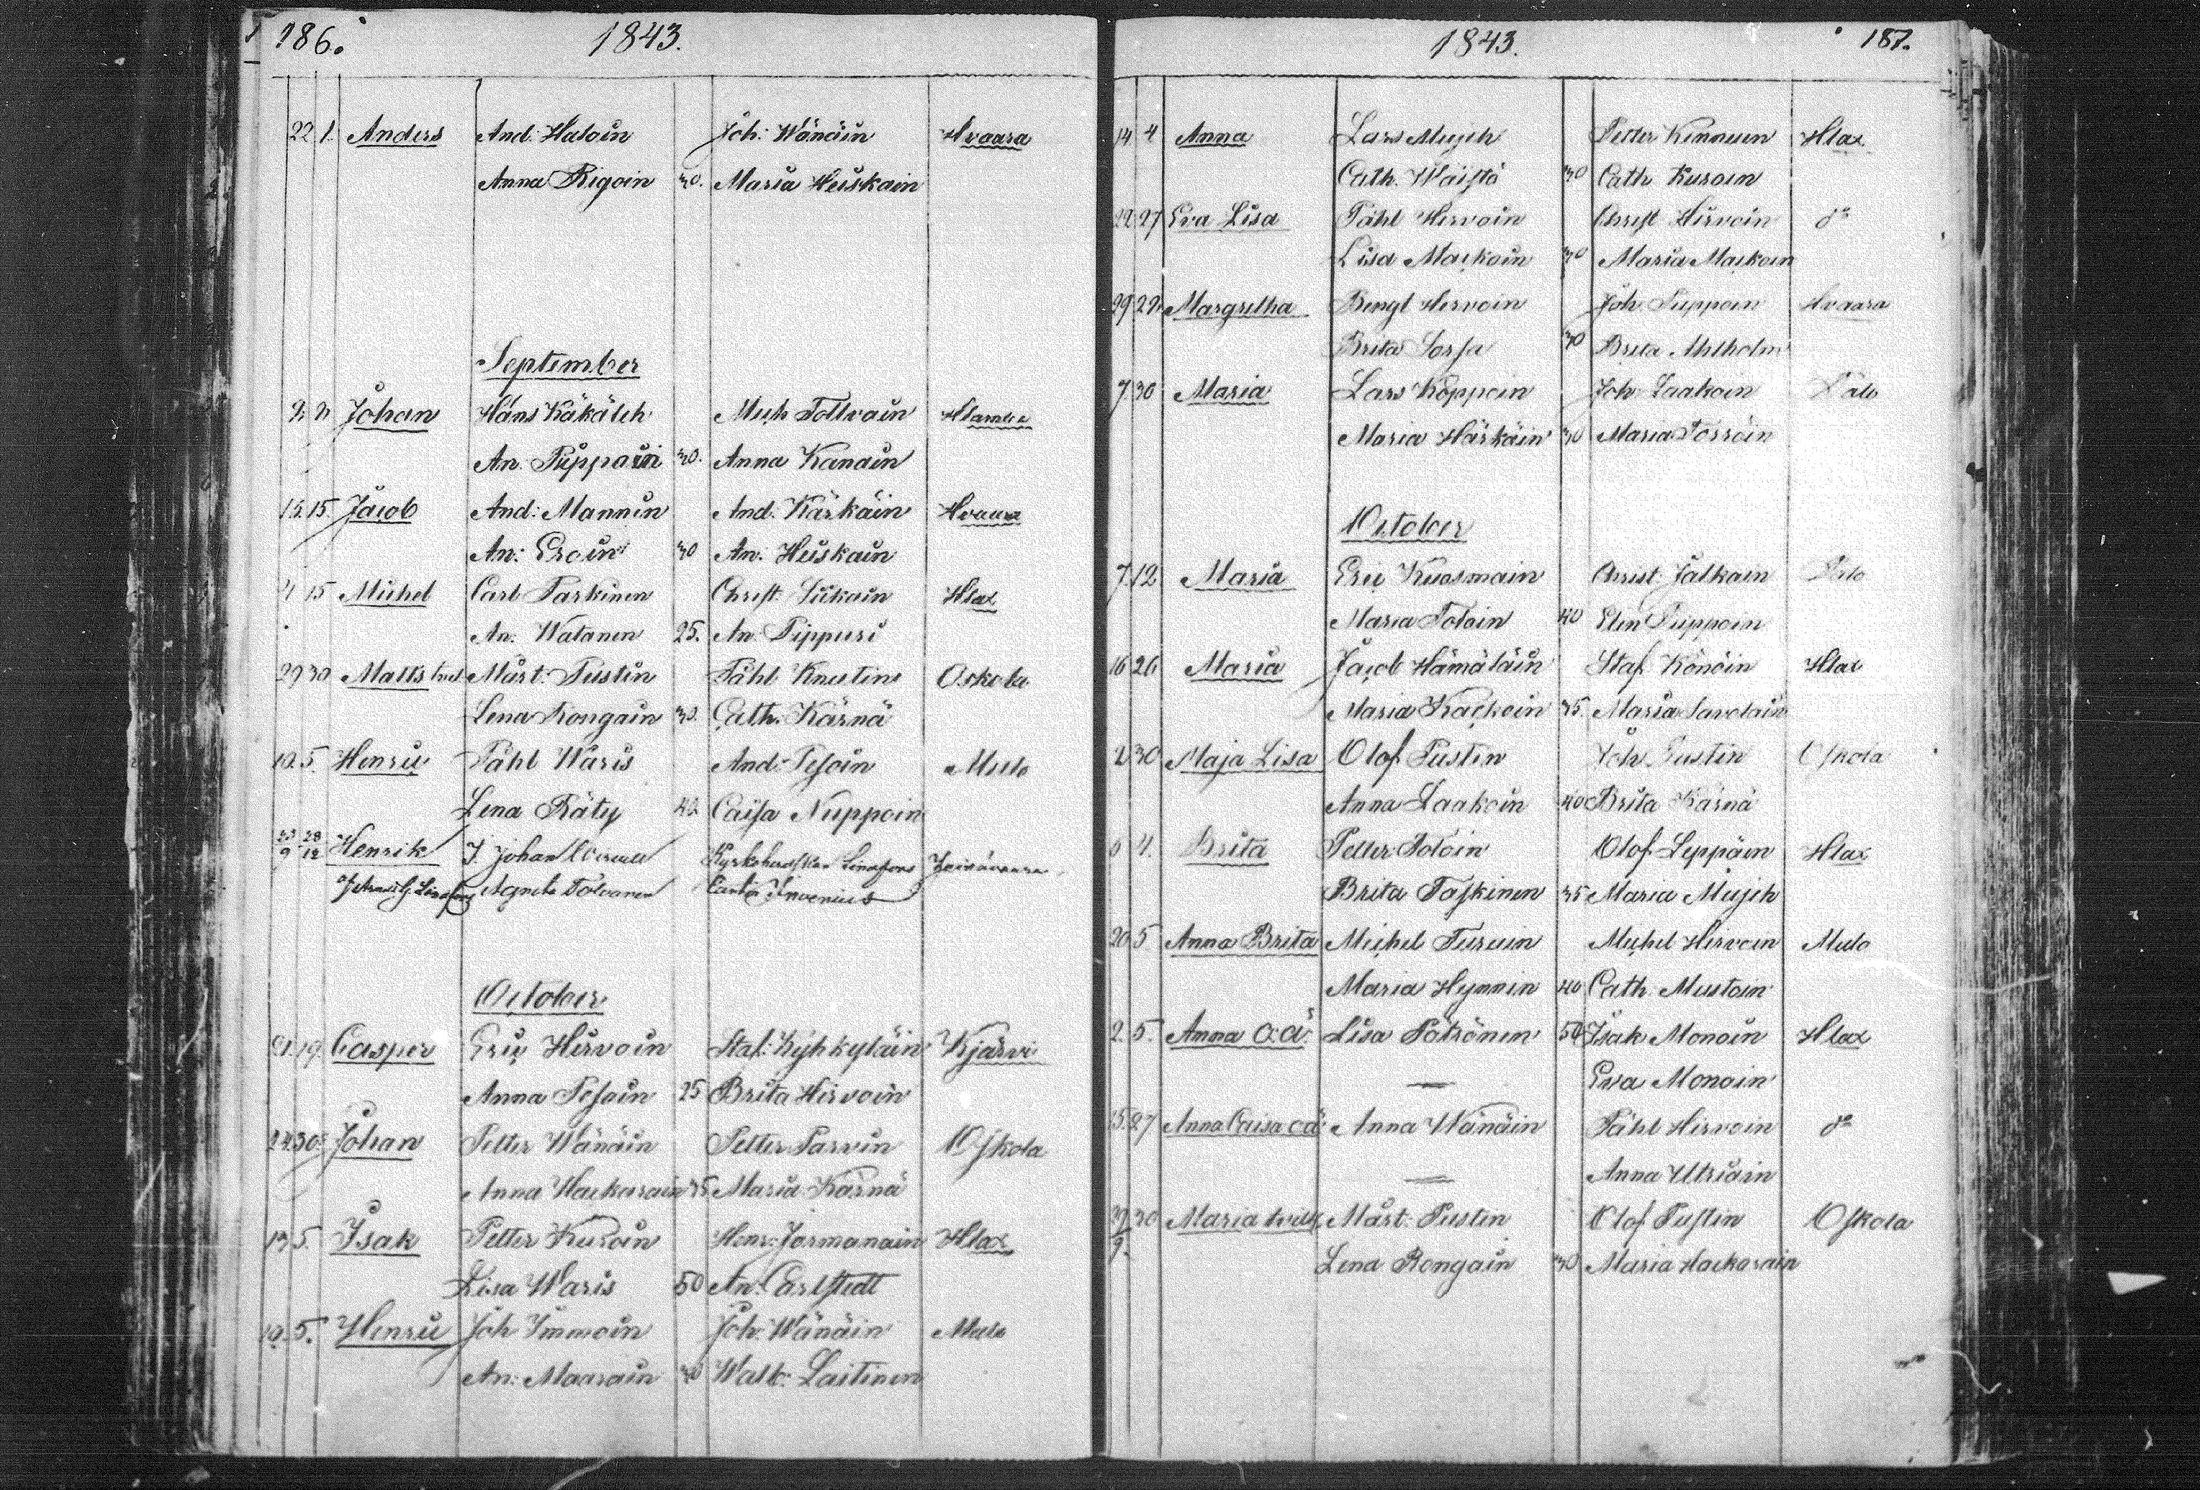 186. 1843.
22 1. Anders And: Haloin Joh: Wänäin Hvaara
Anna Rigoin 30. Maria Heiskain
September
2 2 Johan Hans Käkäleh Mich Tolvain
An. Puppoin 30. Anna Kanain
15 15 Jacob And: Mannin And. Kärkäin Hvaara
An: Eroin 30 An. Heiskain
15 Michel Carl Tarkinen Christ: Liikain Hlax
An: Watanen 25. An: Tippuri
29 30 Matts Mårt: Pustin Påhl Knutin Oskola
Lena Rongain 30. Cath. Kärnä
10. 5. Henric Påhl Waris And: Pesoin Mulo
Lena Räty 42 Caisa Nuppoin
23/9 28/12 Henrik J. Johan
Agneta Tolvanen Cantor Invenius
October
19. Casper Eric Hirvoin Staf: Kyhkyläin Kjärvi
Anna Pesoin 25 Brita Hirvoin
24 30 Johan Petter Wänäin Petter Parvin Oskola
Anna Hackarain 35 Maria Kärnä
5. Isak Petter Kuroin Henr: Jormanain Hlax
Lisa Waris 50 An: Carlstedt
5. Henric Joh Immoin Joh: Wänäin Mulo
An: Maarain 30 Walb: Laitinen
1843. 187.
14 4 Anna Lars Mujeh Petter Kinnuen Hlax
Cath. Waistö 30 Cath Kuroin
22 27 Eva Lisa Påhl Hirvoin Christ Hirvoin do
Lisa Mackoin 30 Maria Mackoin
29 22 Margretha Bengt Hirvoin Joh: Puppoin Hvaara
Brita Sorsa 30 Brita Ahlholm
7 30 Maria Lars Koppoin Joh Laakoin Palo
Maria Härkäin 30 Maria Torroin
October
7 12 Maria Eric Kuosmain Christ: Jalkain Palo
Maria Toloin 40 Elin Puppoin
16 26 Maria Jacob Hämäläin Staf Könöin Hlax
Maria Kackoin 35. Maria Savolain
2 30 Maja Lisa Olof Pustin Joh Pustin Oskola
Anna Laakoin 40 Brita Kärnä
6 4. Brita Petter Toloin Olof Leppäin Hlax
Brita Taskinen 35 Maria Mujeh
20 5 Anna Brita Michel Turuin Michel Hirvoin Mulo
Maria Hynnin 40 Cath Mustoin
2 5. Anna o.ä. Lisa Pötrönen 54 Isak Monoin Hlax
— Eva Monoin
15. 27 Anna Caisa oä. Anna Wänäin Påhl Hirvoin do
— Anna Utriain
30 Maria Mårt: Pustin Olof Pustin Oskola
9. Lena Rongain 30 Maria Hackarain